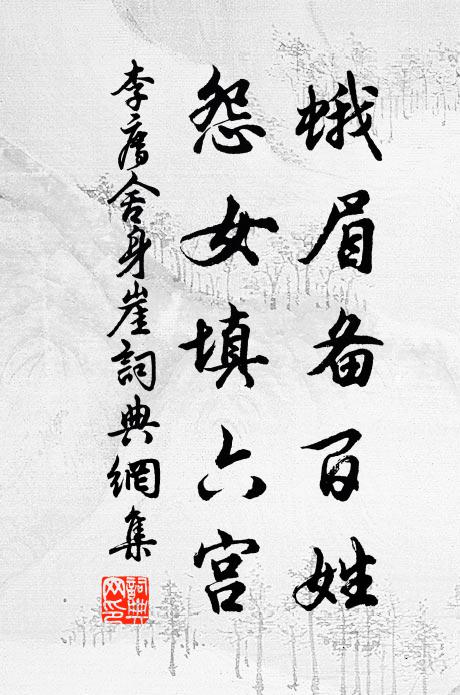 蛾眉备百姓
怨女填六宫
李廌舍身崖詞典網集
詞典网印